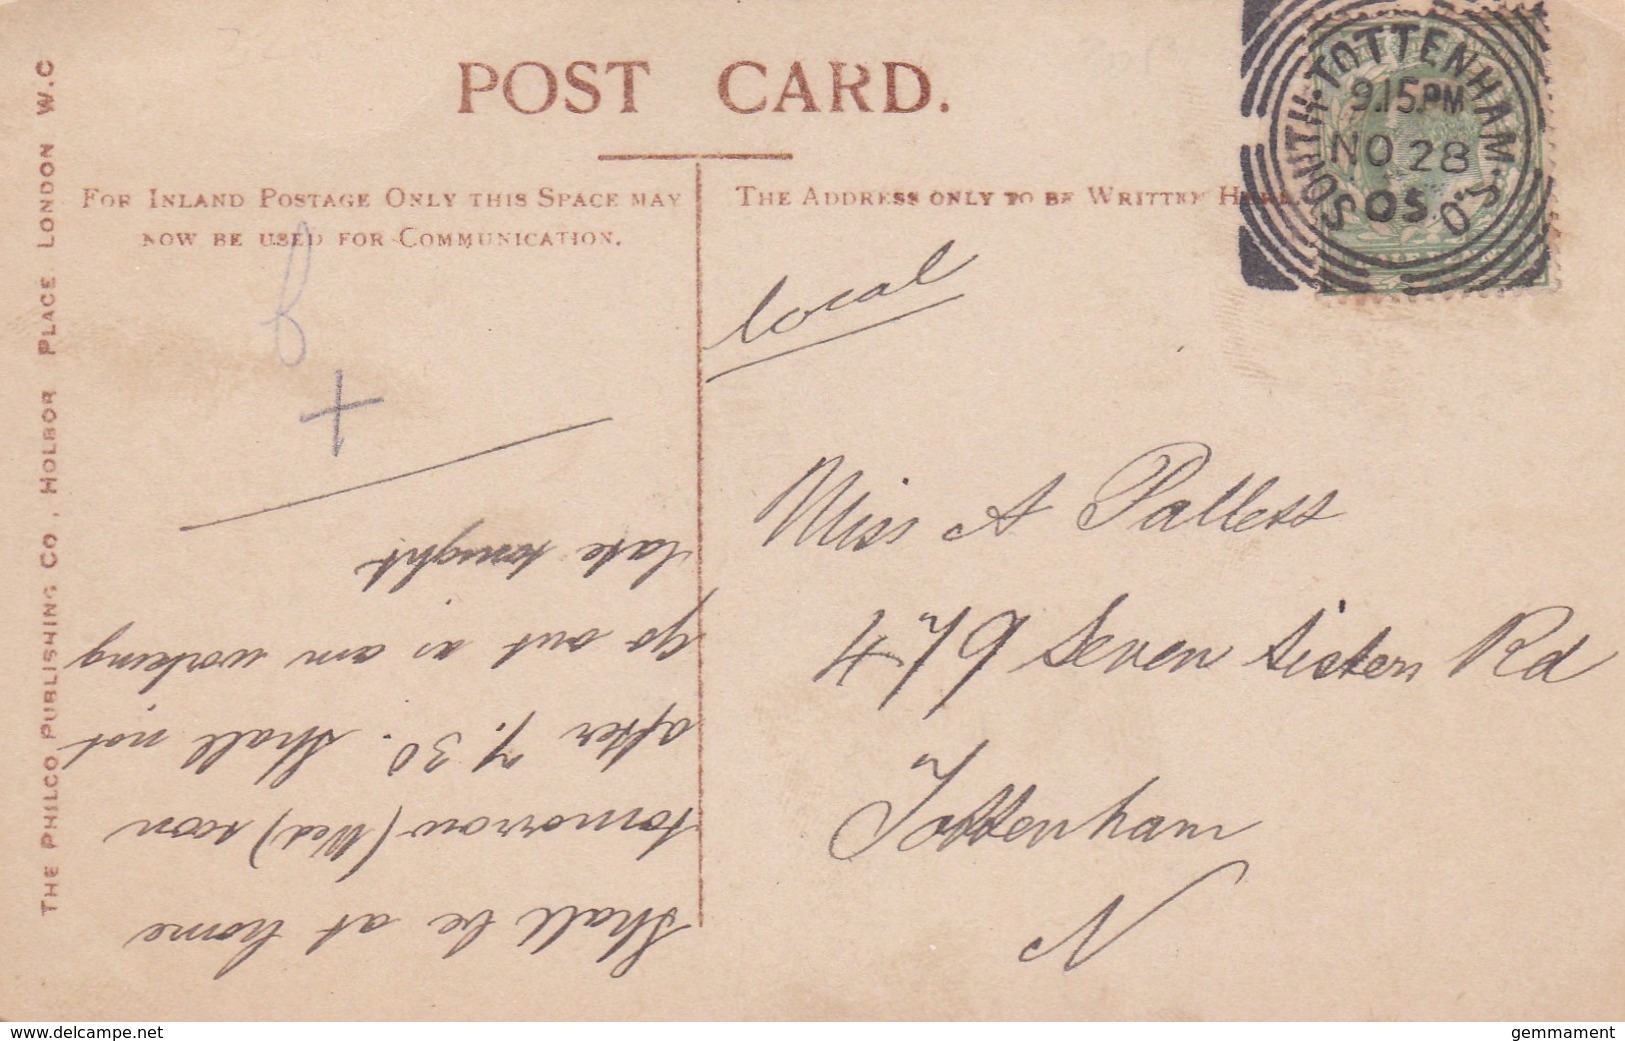 POST CARD.
FOR INLAND POSTAGE ONLY THIS SPACE MAY
NOW BE USED FOR COMMUNICATION.
THE ADDRESS ONLY TO BE WRITTEN HERE.
THE PHILCO PUBLISHING CO, HOLBOR PLACE LONDON W.C
SOUTH TOTTENHAM S.O
9.15.PM
NO 28
05
local
Miss A Pallett
479 Seven Sisters Rd
Tottenham
N
Shall be at home
tomorrow (Wed) soon
after 7.30. Shall not
go out as am working
late tonight
+
www.delcampe.net
gemmament